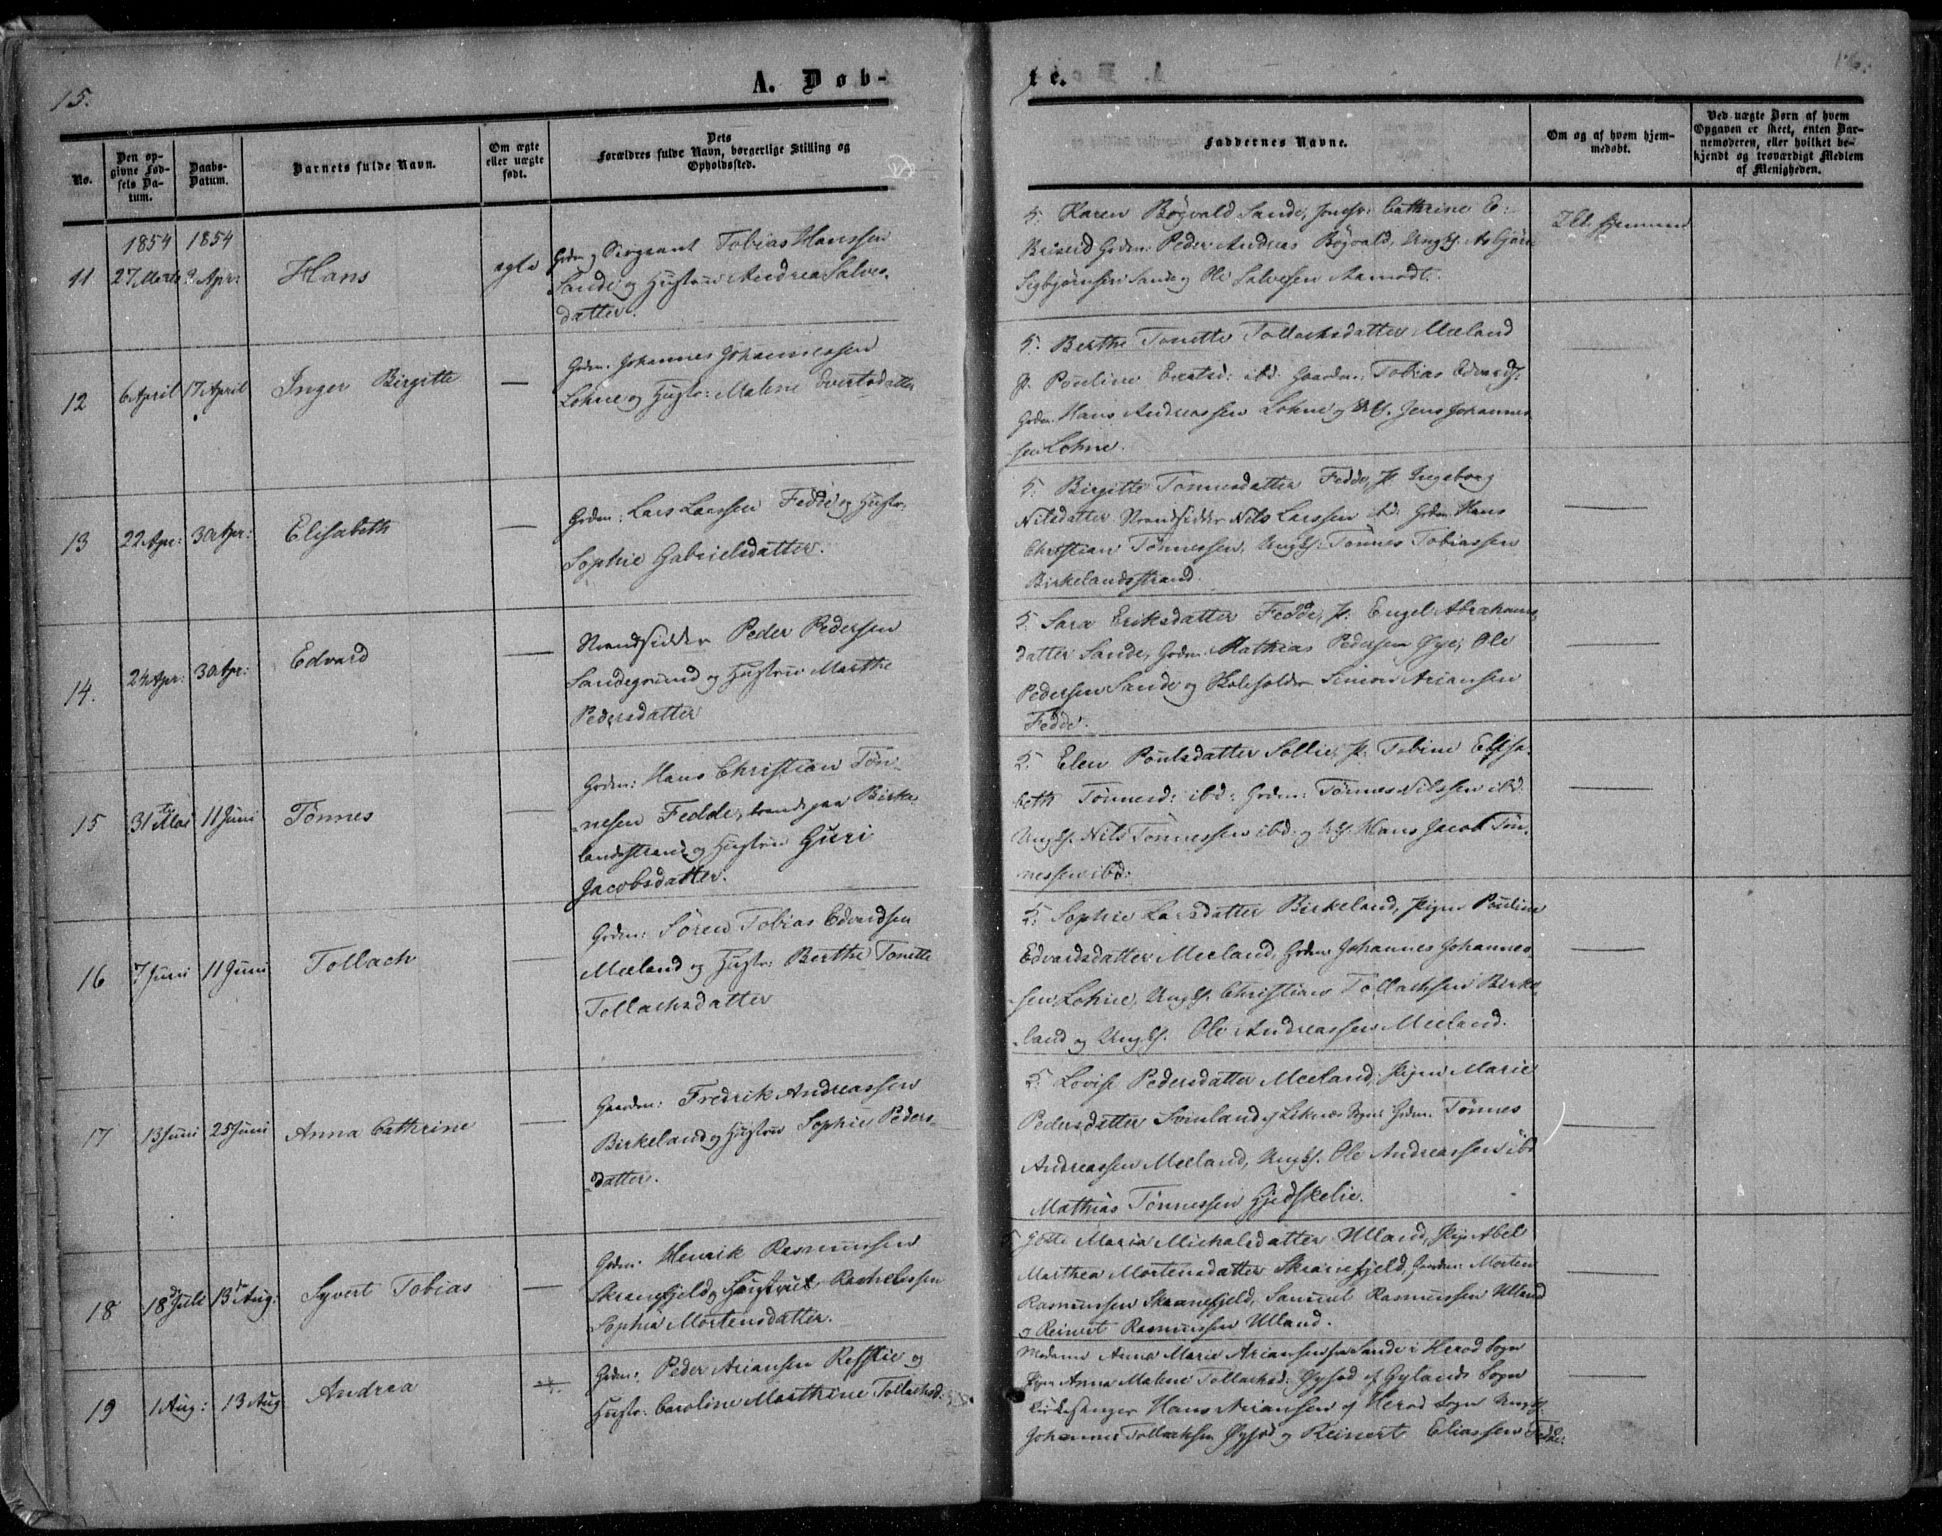 15.
16.
A. Døb-
te.
No.
Den op-
givne Fød-
sels Da-
tum.
Daabs-
Datum.
Barnets fulde Navn.
Om ægte
eller uægte
født.
Dets
Forældres fulde Navn, borgerlige Stilling og
Opholdssted.
Faddernes Navne.
Om og af hvem hjem-
medøbt.
Ved uægte Børn af hvem
Opgaven er skeet, enten Bar-
nemoderen, eller hvilket be-
kjendt og troværdigt Medlem
af Menigheden.
1854 1854
11 27 Marts 2 Apr: Hans ægte
Grdm og Sergeant Tobias Hanssen
Sande og Hustrue Andrea Salves-
datter.
5. Karen Bøgvald Sande, Jomfr: Cathrine E:
Grdm: Peder Andreas Bøgvald, Ungk. Asbjørn
Sigbjørnsen Sande og Ole Salvesen Aamodt.
12 6 April 17 April Inger Birgitte —
Grdm. Johannes Johannessen
Lohne og Hustr: Malene Evertsdatter
5. Berthe Tonette Tollachsdatter Mæland
P. Pouline ibd: Gaardm: Tobias
Grdm. Hans Andreassen Lohne og Jens Johannes-
sen Lohne.
13 22 Apr: 30 Apr: Elisabeth —
Grdm: Lars Larssen Fedde og Hustr:
Sophie Gabrielsdatter.
5: Birgitte Tønnesdatter Fedde, P. Ingeborg
Nilsdatter Strandsidder Nils Larssen ibd: Grdm Hans
Christian Tønnessen, Ungk: Tønnes Tobiassen
Birkelandsstrand.
14. 24 Apr: 30 Apr: Edvard —
Strandsidder Peder Pedersen
Sandegrund og Hustrue Marthe
Pedersdatter
5 Sara Eriksdatter Fedde, P. Engel Abrahams-
datter Sande, Grdm. Mathias Pedersen Øye, Ole
Pedersen Sande og Skoleholder Simon Ariansen
Fedde.
15 31te Mai 11 Juni Tønnes —
Grdm: Hans Christian Tøn-
nesen Fedde, boende paa Birke-
landsstrand og Hustrue Guri
Jacobsdatter.
5. Elen Poulsdatter Sollie, P. Tobine Elisa-
beth Tønnesd: ibd: Grdm: Tønnes Nilssen ibd.
Ungk. Nils Tønnessen ibd. og Hans Jacob Tøn-
nessen ibd:
16 7 Juni 11 Juni Tollach —
Grdm: Søren Tobias Edvardsen
Mæland og Hustr: Berthe Tonette
Tollachsdatter
5. Sophie Larsdatter Birkeland, Pigen Pouline
Edvardsdatter Meeland, Grdm: Johannes Johannes-
sen Lohne, Ungk. Christian Tollachsen Birke-
land og Ungk. Ole Andreassen Meeland.
17 13 Juni 25 Juni Anna Cathrine —
Gaardm: Fredrik Andreassen
Birkeland og Hustrue Sophie Peders-
datter.
5. Lovise Pedersdatter Meeland, Pigen Marie
Pedersdatter af Sogn: Grdm. Tønnes
Andreassen Meeland, Ungk. Ole Andreassen ibd
Mathias Tønnessen Gjedskelie.
18 18de Juli 13de Aug: Syvert Tobias —
Grdm: Henrik Rasmussen
Skranefjeld og
Sophia Mortensdatter.
Maria Michalsdatter Ulland, Pige Abel
Marthea Mortensdatter Skranefjeld, Gaardm: Morten
Rasmussen Skranefjeld, Samuel Rasmussen Ulland
og Reinert Rasmussen Ulland.
19 1 Aug: 13 Aug Andrea
Grdm: Peder Ariansen og
Hustr: Caroline Marthine Tollachsd:
Madame Anna Marie Ariansen Sande i Herod Sogn
Pigen Anna Malene Tollachsd: af Gylands Sogn
Kirkesanger Hans Ariansen af Herod Sogn Ungk.
Johannes Tollachsen og Reinert Eliassen Fedde.